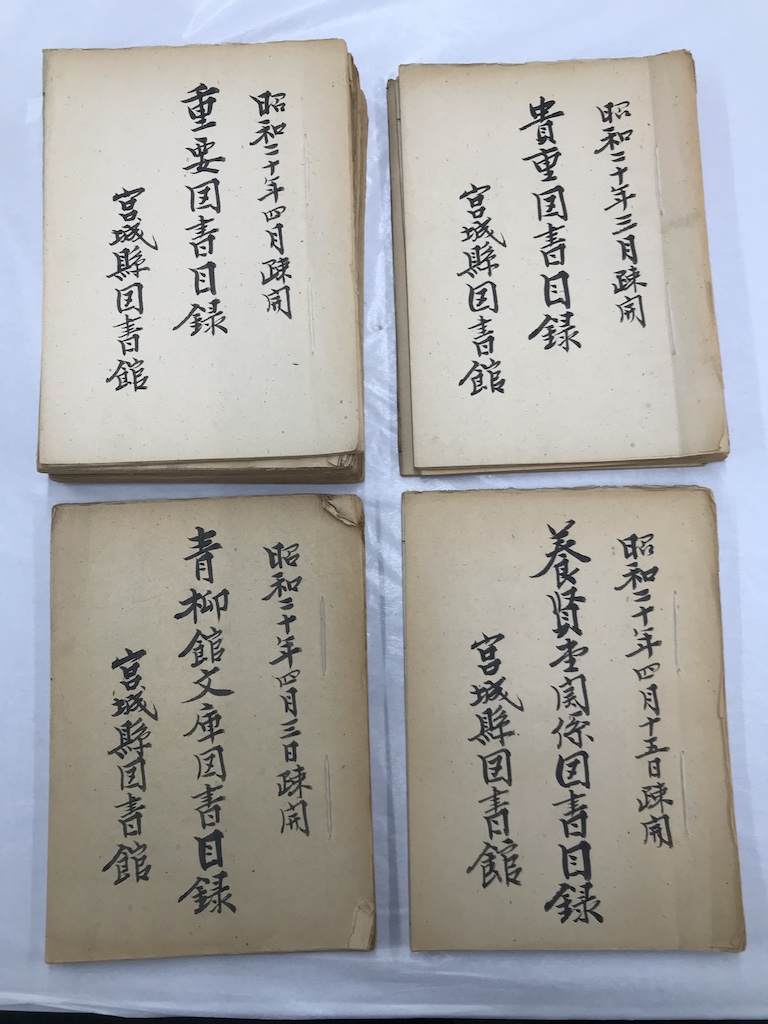 昭和二十年三月疎開
貴重図書目録
宮城縣図書館
昭和二十年四月疎開
重要図書目録
宮城縣図書館
昭和二十年四月十五日疎開
養賢堂関係図書目録
宮城縣図書館
昭和二十年四月三日疎開
青柳館文庫図書目録
宮城縣図書館